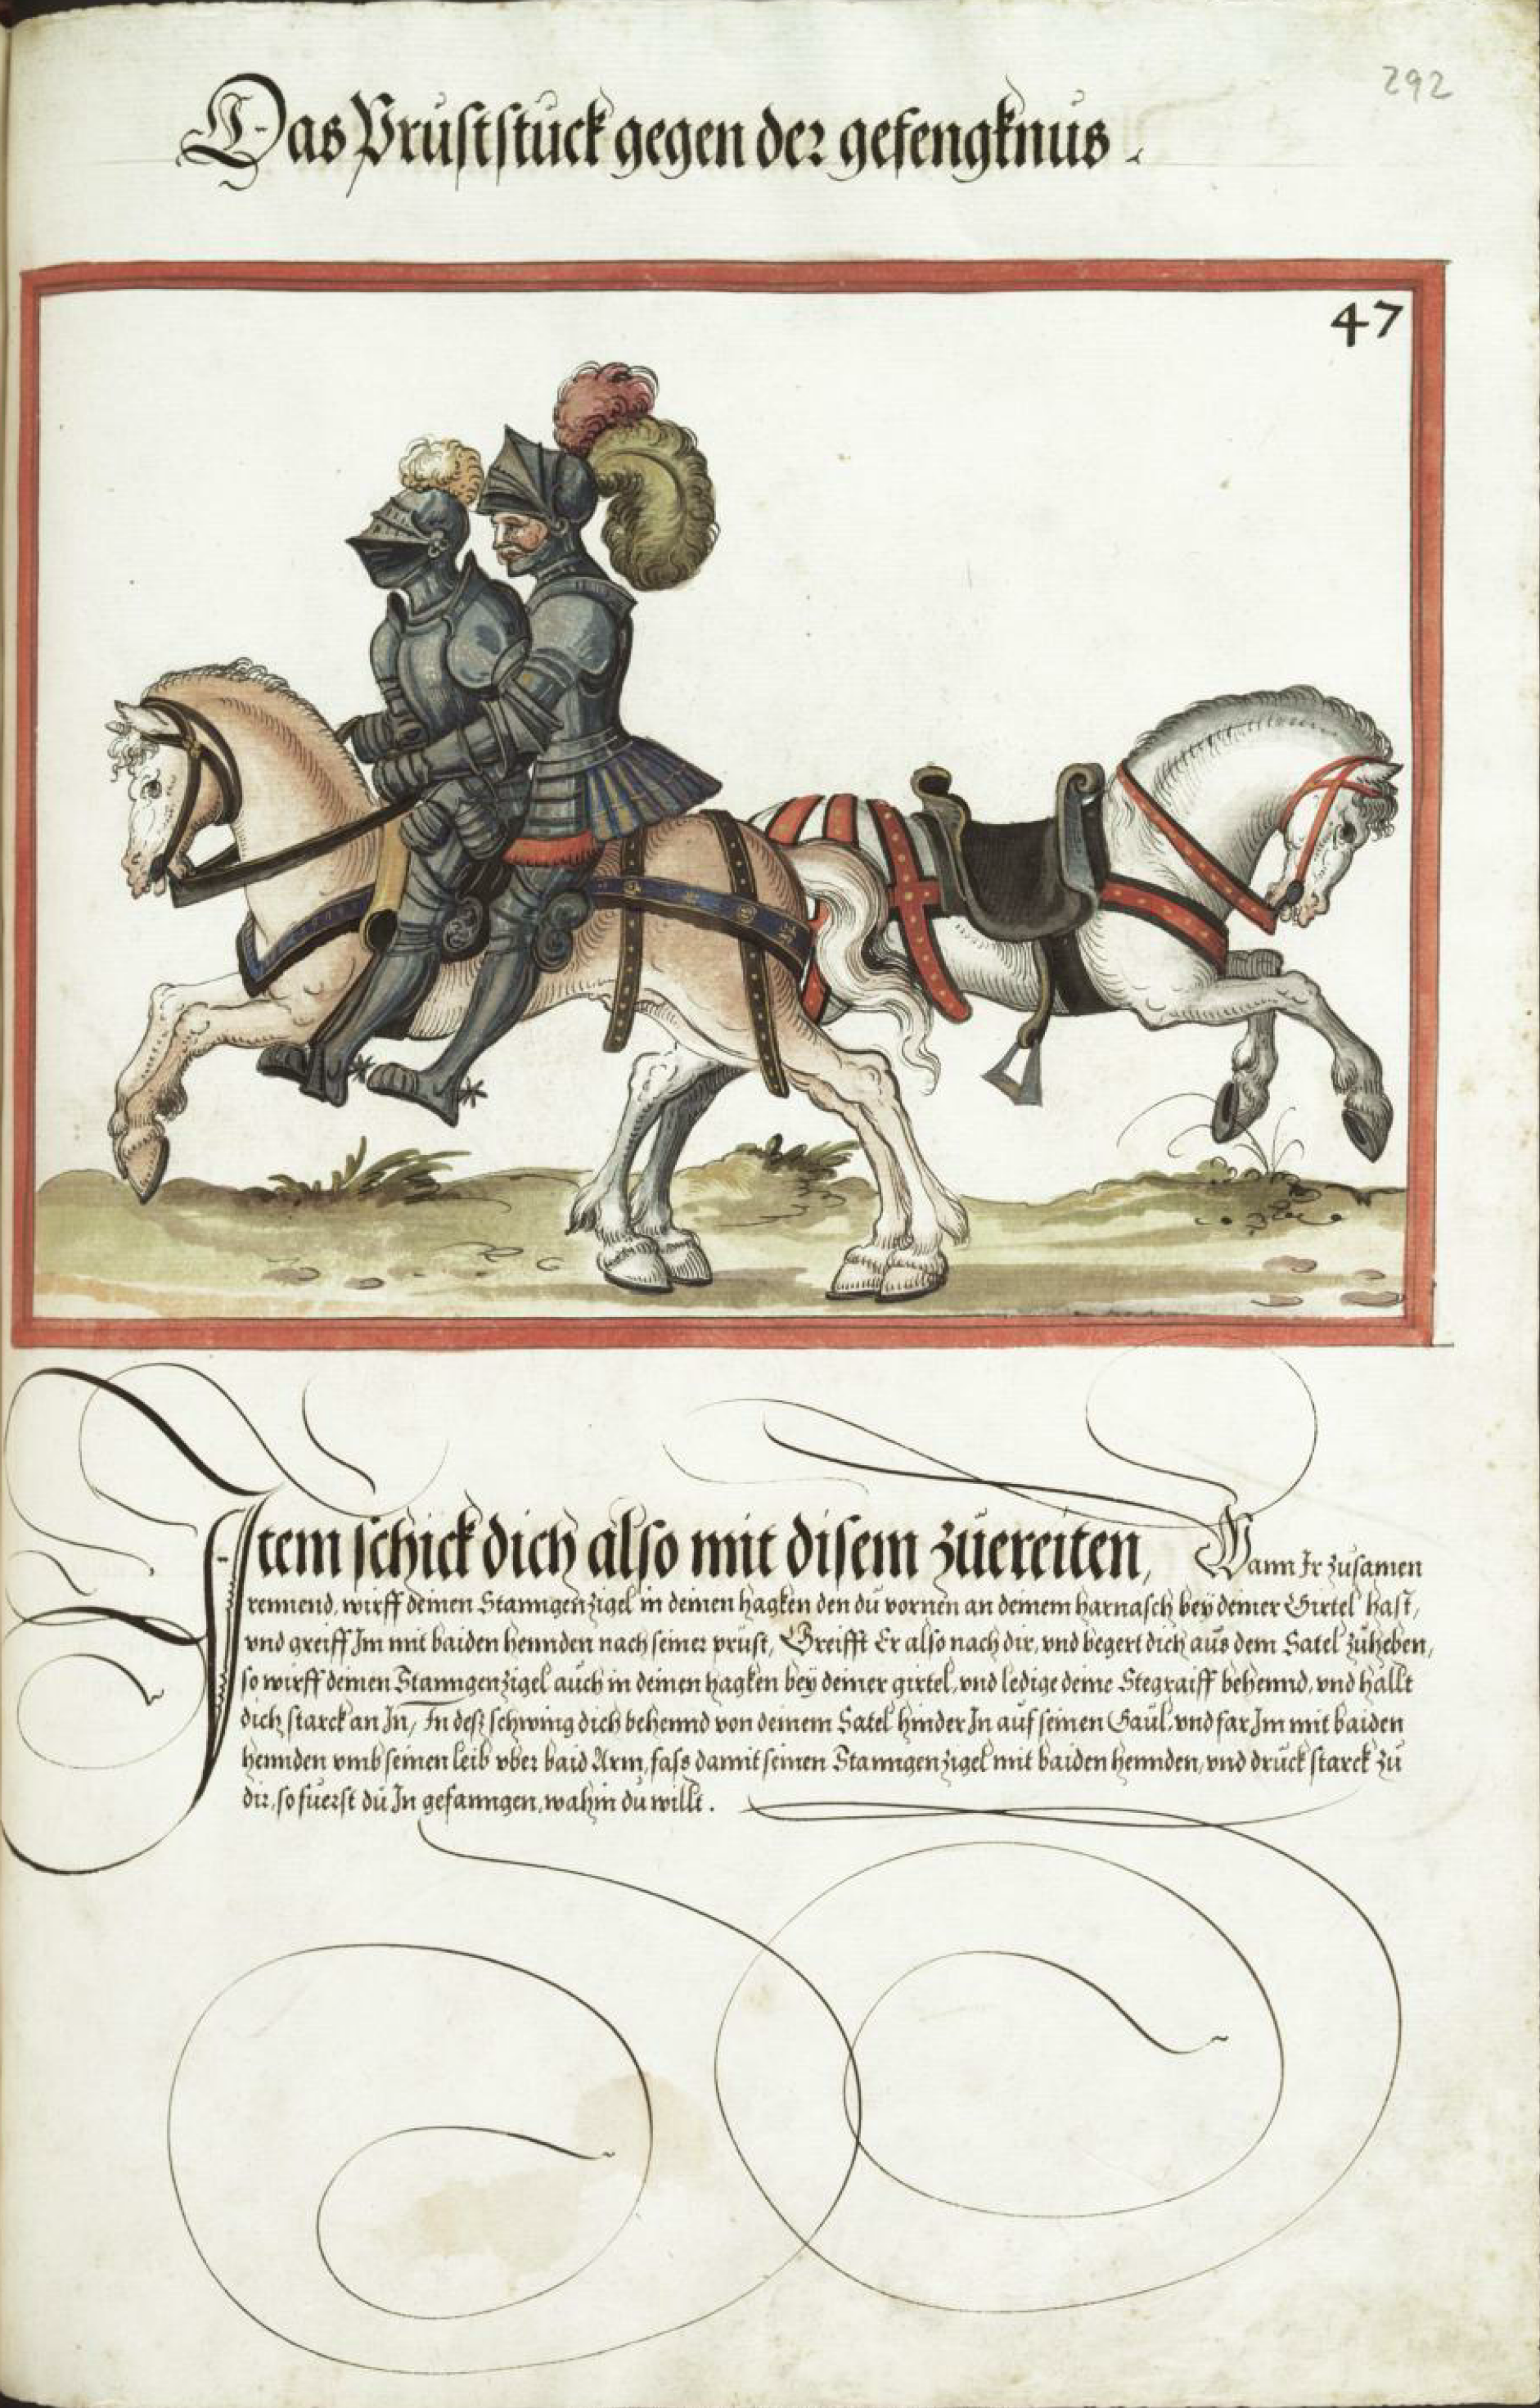 292
Das Prúststúck gegen der gefengknús.
47
Item schick dich also mit disem zúereiten, Wann Ir zusamen
rennend, wirff deinen Stanngenzigel in deinen hagken den dú vornen an deinem harnasch beÿ deiner Girtel hast,
vnd greiff Im mit baiden hennden nach seiner prúst, Greifft Er also nach dir, vnd begert dich aús dem Satel zúheben,
so wirff deinen Stanngenzigel aúch in deinen hagken beÿ deiner girtel, vnd ledige deine Stegraiff behennd, vnd hallt
dich starck an In, In desz schwing dich behennd von deinem Satel hinder In aúf seinen Gaúl, vnd far Im mit baiden
hennden vmb seinen leib vber baid Arm, fass damit seinen Stanngenzigel mit baiden hennden, vnd drúck starck zú
dir, so fúerst dú In gefanngen, wahin dú willt.